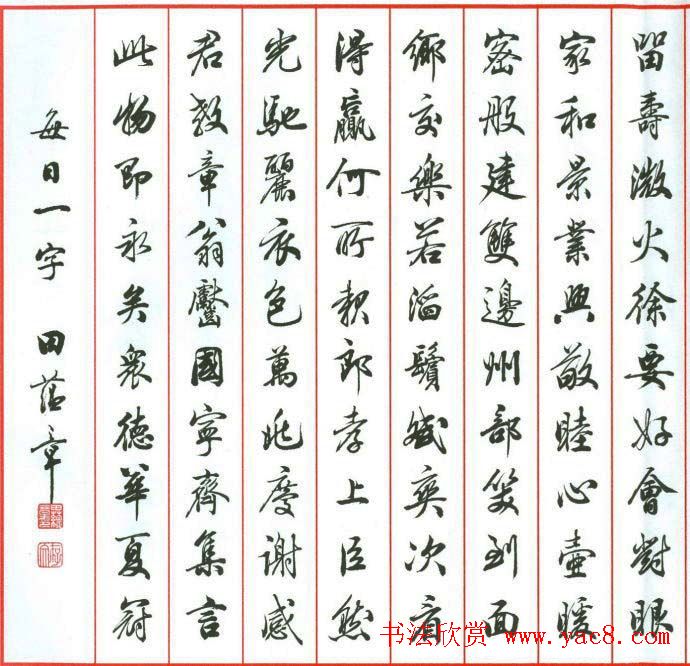 留壽微火徐要好會對眼
家和景業興敬睦心壺暖
密般建雙邊州部笑到面
鄉交樂若滔鬢奕次看
得贏何所郎孝上臣然
光馳麗衣色萬兆度謝感
君教章翁國寧齊集言
此物即永矣眾德華夏冠
每日一字 田蕴章
书法欣赏 www.yac8.com